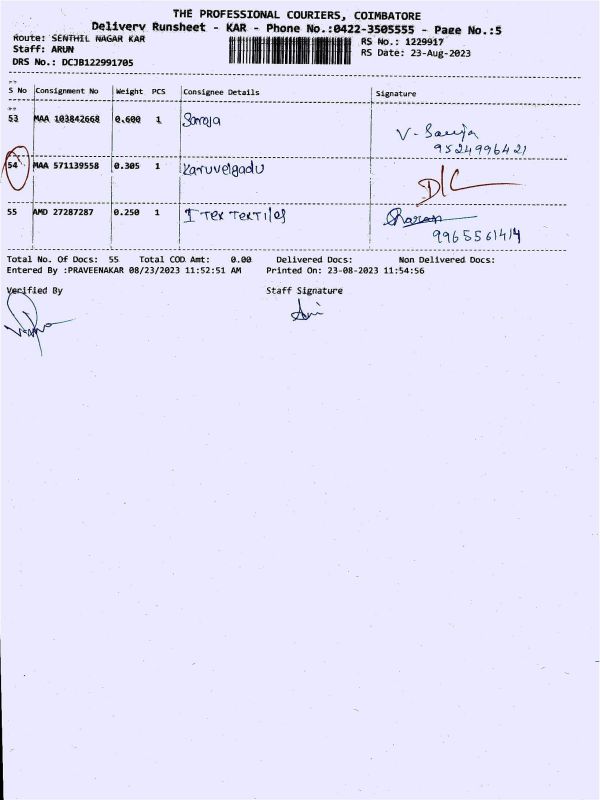 THE PROFESSIONAL COURIERS, COIMBATORE
Delivery Runsheet - KAR - Phone No.:0422-3505555 - Page No.:5
Route: SENTHIL NAGAR KAR RS No.: 1229917
Staff: ARUN RS Date: 23-Aug-2023
DRS No.: DCJB122991705
S No Consignment No Weight PCS Consignee Details Signature
53 MAA 103842668 0.600 1 Saroja
9524996421
54 MAA 571139558 0.305 1 Karuvelgadu D/C
55 AMD 27287287 0.250 1 I Tex TexTiles Charan
9965561414
Total No. Of Docs: 55 Total COD Amt: 0.00 Delivered Docs: Non Delivered Docs:
Entered By :PRAVEENAKAR 08/23/2023 11:52:51 AM Printed On: 23-08-2023 11:54:56
Verified By Staff Signature